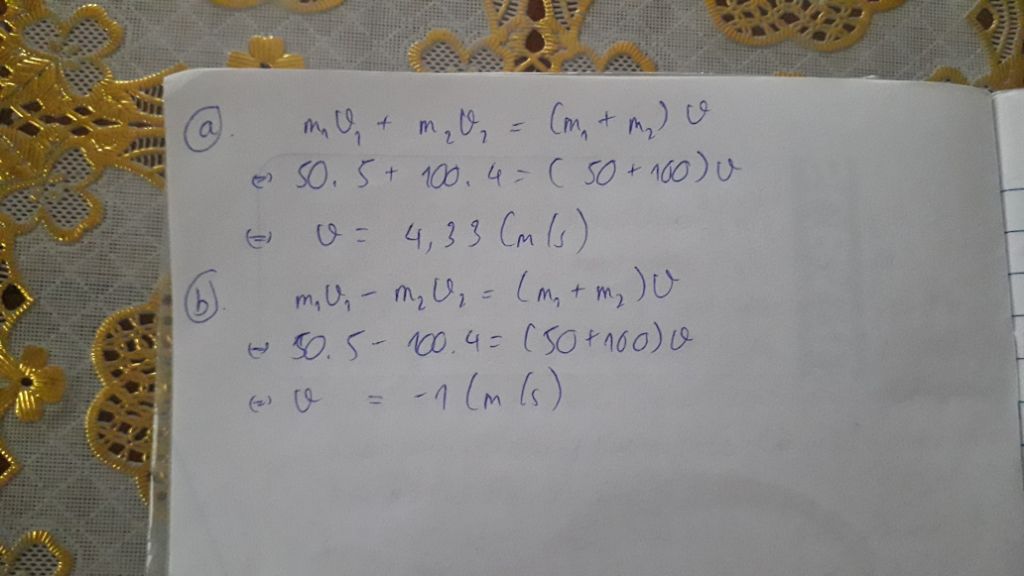 a. m₁v₁ + m₂v₂ = (m₁ + m₂) v
⇔ 50. 5 + 100. 4 = ( 50 + 100) v
⇔ v = 4,33 (m/s)
b. m₁v₁ - m₂v₂ = (m₁ + m₂) v
⇔ 50. 5 - 100. 4 = (50 + 100) v
⇔ v = -1 (m/s)